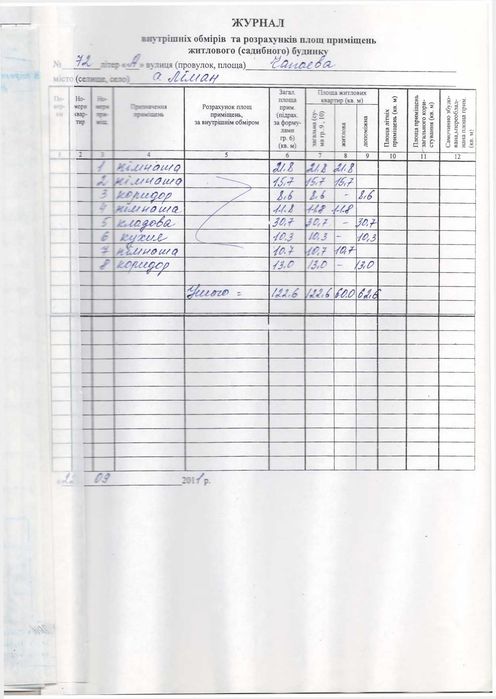 ЖУРНАЛ
внутрішніх обмірів та розрахунків площ приміщень
житлового (садибного) будинку
№ 72 літер «А» вулиця (провулок, площа) Чапаєва
місто (селище, село) с. Лиман
Но-мери квар-тир
Но-мери при-міщ.
Призначення приміщень
Розрахунок площ приміщень, за внутрішнім обміром
Загал. площа прим. (підрах. за форму-лами гр. 6) (кв. м)
Площа житлових квартир (кв. м)
загальна (су-ма гр. 9, 10)
житлова
допоміжна
Площа літніх приміщень (кв. м)
Площа приміщень загального кори-стування (кв. м)
1 2 3 4 5 6 7 8 9 10 11 12
1 кімната 21.8 21.8 21.8
2 кімната 15.7 15.7 15.7
3 коридор 8.6 8.6 - 8.6
4 кімната 11.8 11.8 11.8
5 кладова 30.7 30.7 - 30.7
6 кухня 10,3 10,3 - 10,3
7 кімната 10.7 10.7 10.7
8 коридор 13.0 13.0 - 13.0
Усього = 122.6 122.6 60.0 62.6
22 03 2011 р.